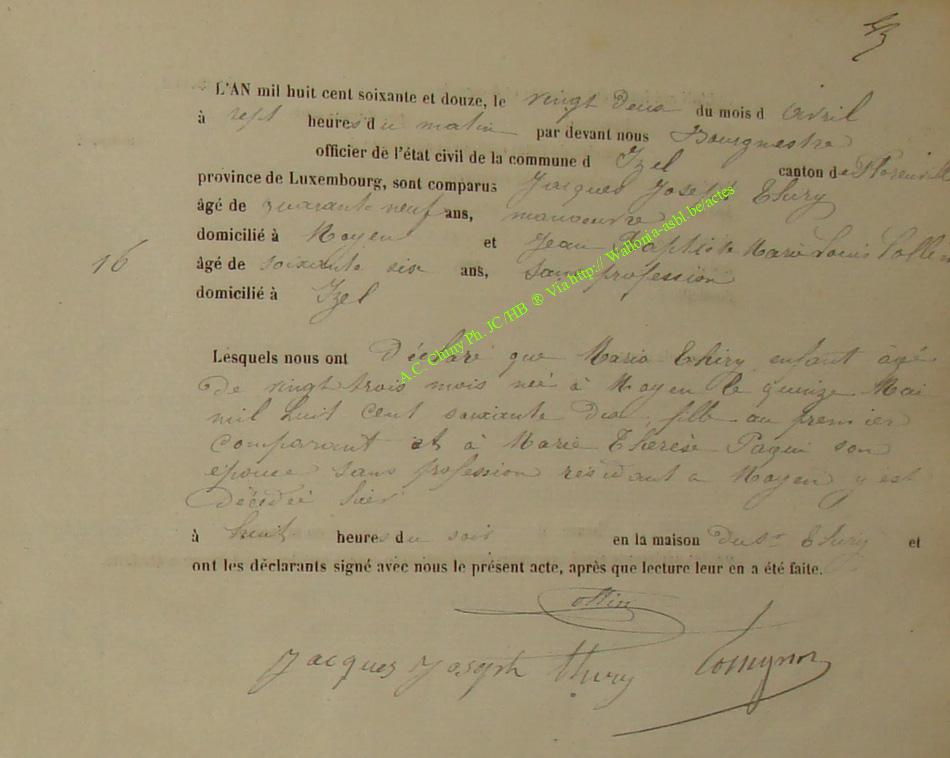 L'AN mil huit cent soixante et douze, le vingt deux du mois d avril
à sept heures du matin par devant nous Bourgmestre
officier de l'état civil de la commune d Izel canton de Florenville
province de Luxembourg, sont comparus Jacques Joseph Thiry
âgé de quarante neuf ans, manoeuvre
domicilié à Moyen et Jean Baptiste Marie Louis
16
âgé de soixante six ans, sans profession
domicilié à Izel
Lesquels nous ont déclaré que Maria Thiry enfant âgé
de vingt trois mois née à Moyen le quinze Mai
mil huit cent soixante dix, fille au premier
comparant et à Marie Therèse Paquin son
épouse sans profession résidant a Moyen y est
décédée hier
à huit heures du soir en la maison du Sr Thiry et
ont les déclarants signé avec nous le présent acte, après que lecture leur en a été faite.
Jacques Joseph thiry
A.C. Chiny Ph. JC/HB ® Via http://Wallonia-asbl.be/actes